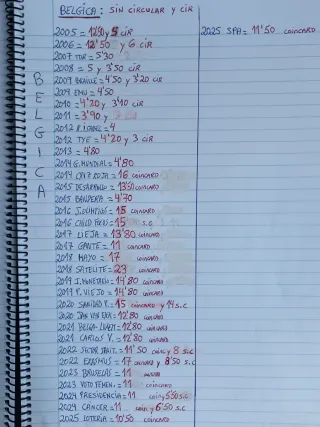 BELGICA: SIN CIRCULAR Y CIR
BELGICA
2005 = 12'50 y 5 CIR
2006 = 12'50 y 6 CIR
2007 TDR = 5'30
2008 = 5 y 3'50 CIR
2009 BRAILLE = 4'50 y 3'20 CIR
2009 EMU = 4'50
2010 = 4'20 y 3'10 CIR
2011 = 3'90 y
2012 R. ISABEL = 4
2012 TYE = 4'20 y 3 CIR
2013 = 4'80
2014 G. MUNDIAL = 4'80
2014 CRUZ ROJA = 16 COINCARD
2015 DESARROLLO = 13'50 COINCARD
2015 BANDERA = 4'70
2016 J. OLIMPICOS = 15 COINCARD
2016 CHILD FOCUS = 15 S.C
2017 LIEJA = 13'80 COINCARD
2017 GANTE = 11 COINCARD
2018 MAYO = 17 COINCARD
2018 SATELITE = 23 COINCARD
2019 I. MONETARIO = 14'80 COINCARD
2019 P. VIEJO = 14'80 COINCARD
2020 SANIDAD V. = 15 COINCARD y 14 S.C
2020 JAN VAN EYCK = 12'80 COINCARD
2021 BELGA-LUXEM = 12'80 COINCARD
2021 CARLOS V = 12'80 COINCARD
2022 SECTOR SANIT. = 11'50 COIN y 8 S.C
2022 ERASMUS = 17 COINCARD y 8'50 S.C
2023 BRUSELAS = 11 COINCARD
2023 VOTO FEMEN. = 11 COINCARD
2024 PRESIDENCIA = 11 COIN y 5'50 S.C
2024 CANCER = 11 COIN y 6'50 S.C
2025 LOTERIA = 10'50 COINCARD
2025 SPA = 11'50 COINCARD